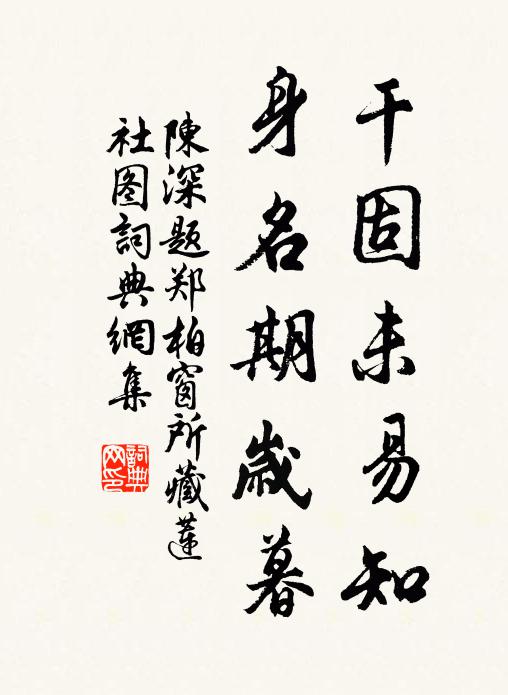 干固未易知
身名期歲暮
陳深题郑柏窗所藏蓮
社图詞典網集
詞典
网印